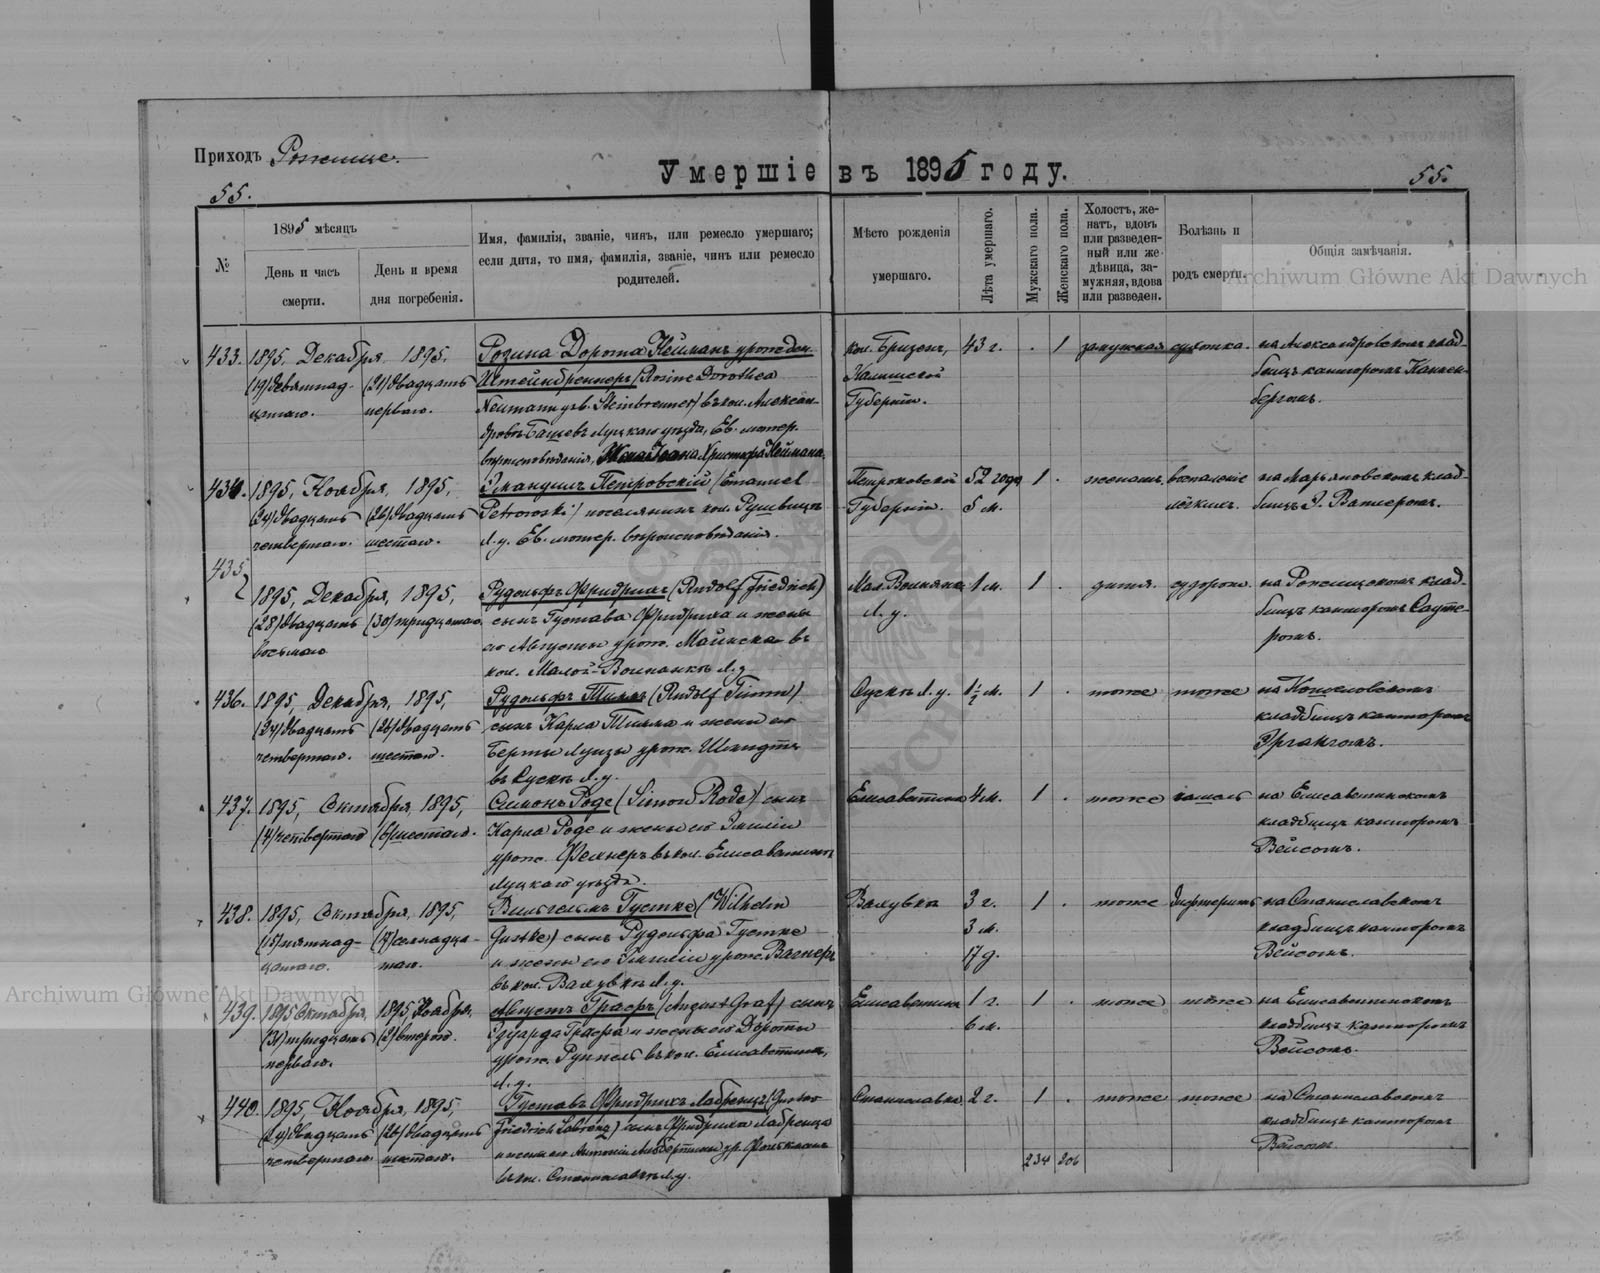 Приходъ Рожище.
Умершіе въ 1895 году.
55.
55.
№
1895 мѣсяцъ
День и часъ смерти.
День и время дня погребенія.
Имя, фамилія, званіе, чинъ, или ремесло умершаго;
если дитя, то имя, фамилія, званіе, чинъ или ремесло
родителей.
Мѣсто рожденія
умершаго.
Лѣта умершаго.
Мужскаго пола.
Женскаго пола.
Холостъ, же-
натъ, вдовъ
или разведен-
ный или же
дѣвица, за-
мужняя, вдова
или разведен.
Болѣзнь и
родъ смерти.
Общія замѣчанія.
Archiwum Główne Akt Dawnych
433. 1895, Декабря, 1895, Розина Доротa Нейманъ урожден. кол. Бризенъ, 43 г. . 1 замужняя сухотка. на Александровскомъ клад-
(19) девятнад- (21) двадцать Штейнбреннеръ (Rosine Dorothea Калишской бищѣ канторомъ
цатаго. перваго. Neumann geb. Steinbrenner) въ кол. Алексан- Губерніи. бергомъ.
Луцкаго уѣзда, Ев. лютер.
вѣроисповѣданія, Жена Христофа Неймана.
434. 1895, Ноября, 1895, Эмануилъ Петровскій (Emanuel Петроковской 52 года 1 . женатъ. воспаленіе на Марьяновскомъ клад-
(24) двадцать (26) двадцать Petrowski) поселянинъ кол. Губерніи. 5 м. легкихъ. бищѣ Э. Ватнеромъ.
четвертаго. шестаго. Л. у. Ев. лютер. вѣроисповѣданія.
435.
1895, Декабря, 1895, Рудольфъ Фридрихъ (Rudolf Friedrich) Мал. Волнянка 1 м. 1 . дитя. судороги. на Рожищскомъ клад-
(28) двадцать (30) тридцатаго. сынъ Густава Фридриха и жены Л. у. бищѣ канторомъ
восьмаго его Августы урож. въ ромъ.
кол. Малой-Волнянкѣ Л. у.
436. 1895, Декабря, 1895, Рудольфъ Тиммъ (Rudolf Timm) Л. у. 1½ м. 1 . тоже тоже на
(24) двадцать (26) двадцать сынъ Карла Тимма и жены его кладбищѣ канторомъ
четвертаго. шестаго. Берты Луизы урож. Шмидтъ
въ Л. у.
437. 1895, Октября, 1895, Симонъ Роде (Simon Rode) сынъ Елисаветинъ 4 м. 1 . тоже кашель на Елисаветинскомъ
(4) четвертаго (6) шестаго. Карла Роде и жены его Эмиліи кладбищѣ канторомъ
урож. въ кол. Елисаветинъ Вейсомъ.
Луцкаго уѣзда.
438. 1895, Октября, 1895, Вильгельмъ Густке (Wilhelm 3 г. 1 . тоже дифтеритъ на Станиславскомъ
(15) пятнад- (17) семнадца- Gustke) сынъ Рудольфа Густке 3 м. кладбищѣ канторомъ
цатаго. таго. и жены его Эмиліи урож. Вагнеръ 17 д. Вейсомъ.
въ кол. Л. у.
Archiwum Główne Akt Dawnych
439. 1895 Октября, 1895, Ноября, Августъ Графъ (August Graf) сынъ Елисаветинъ 1 г. 1 . тоже тоже на Елисаветинскомъ
(31) тридцать (2) втораго. Эдуарда Графа и жены его Доротеи 6 м. кладбищѣ канторомъ
перваго. урож. Руппель въ кол. Елисаветинъ, Вейсомъ.
Л. у.
440. 1895, Ноября, 1895, Густавъ Фридрихъ Лабренцъ (Gustav Станиславка 2 г. 1 . тоже тоже на Станиславскомъ
(24) двадцать (26) двадцать Friedrich Labrenz) сынъ Фридриха Лабренца кладбищѣ канторомъ
четвертаго. шестаго. и жены его ур. Вейсомъ.
въ кол. Станиславкѣ Л. у.
234 206